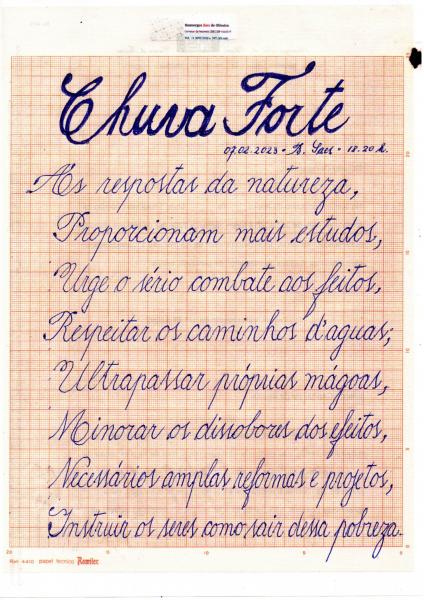 Chuva Forte
07.02.2023 • B. Saes • 18.20 h.
As respostas da natureza,
Proporcionam mais estudos,
Urge o sério combate aos feitos,
Respeitar os caminhos d'aguas;
Ultrapassar próprias mágoas,
Minorar os dissobores dos efeitos,
Necessários amplas reformas e projetos,
Instruir os seres como sair dessa pobreza.
20
15
10
5
0
Ref. 4410 papel técnico Romitec